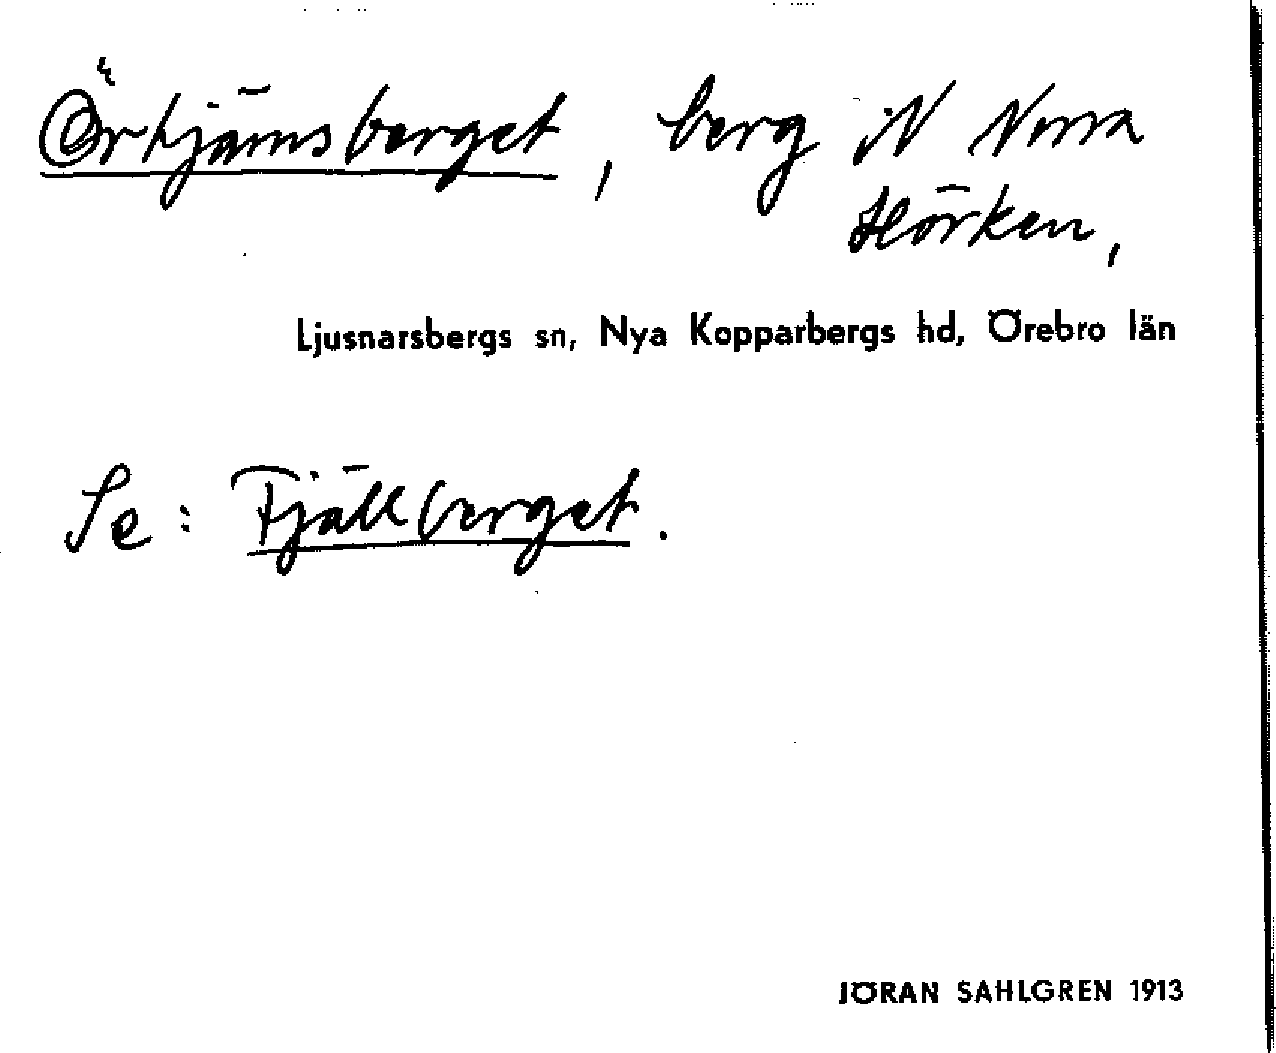 Örtjärnsberget, berg i N Norra
Hörken,
Ljusnarsbergs sn, Nya Kopparbergs hd, Örebro län
Se: Fjällberget.
JÖRAN SAHLGREN 1913